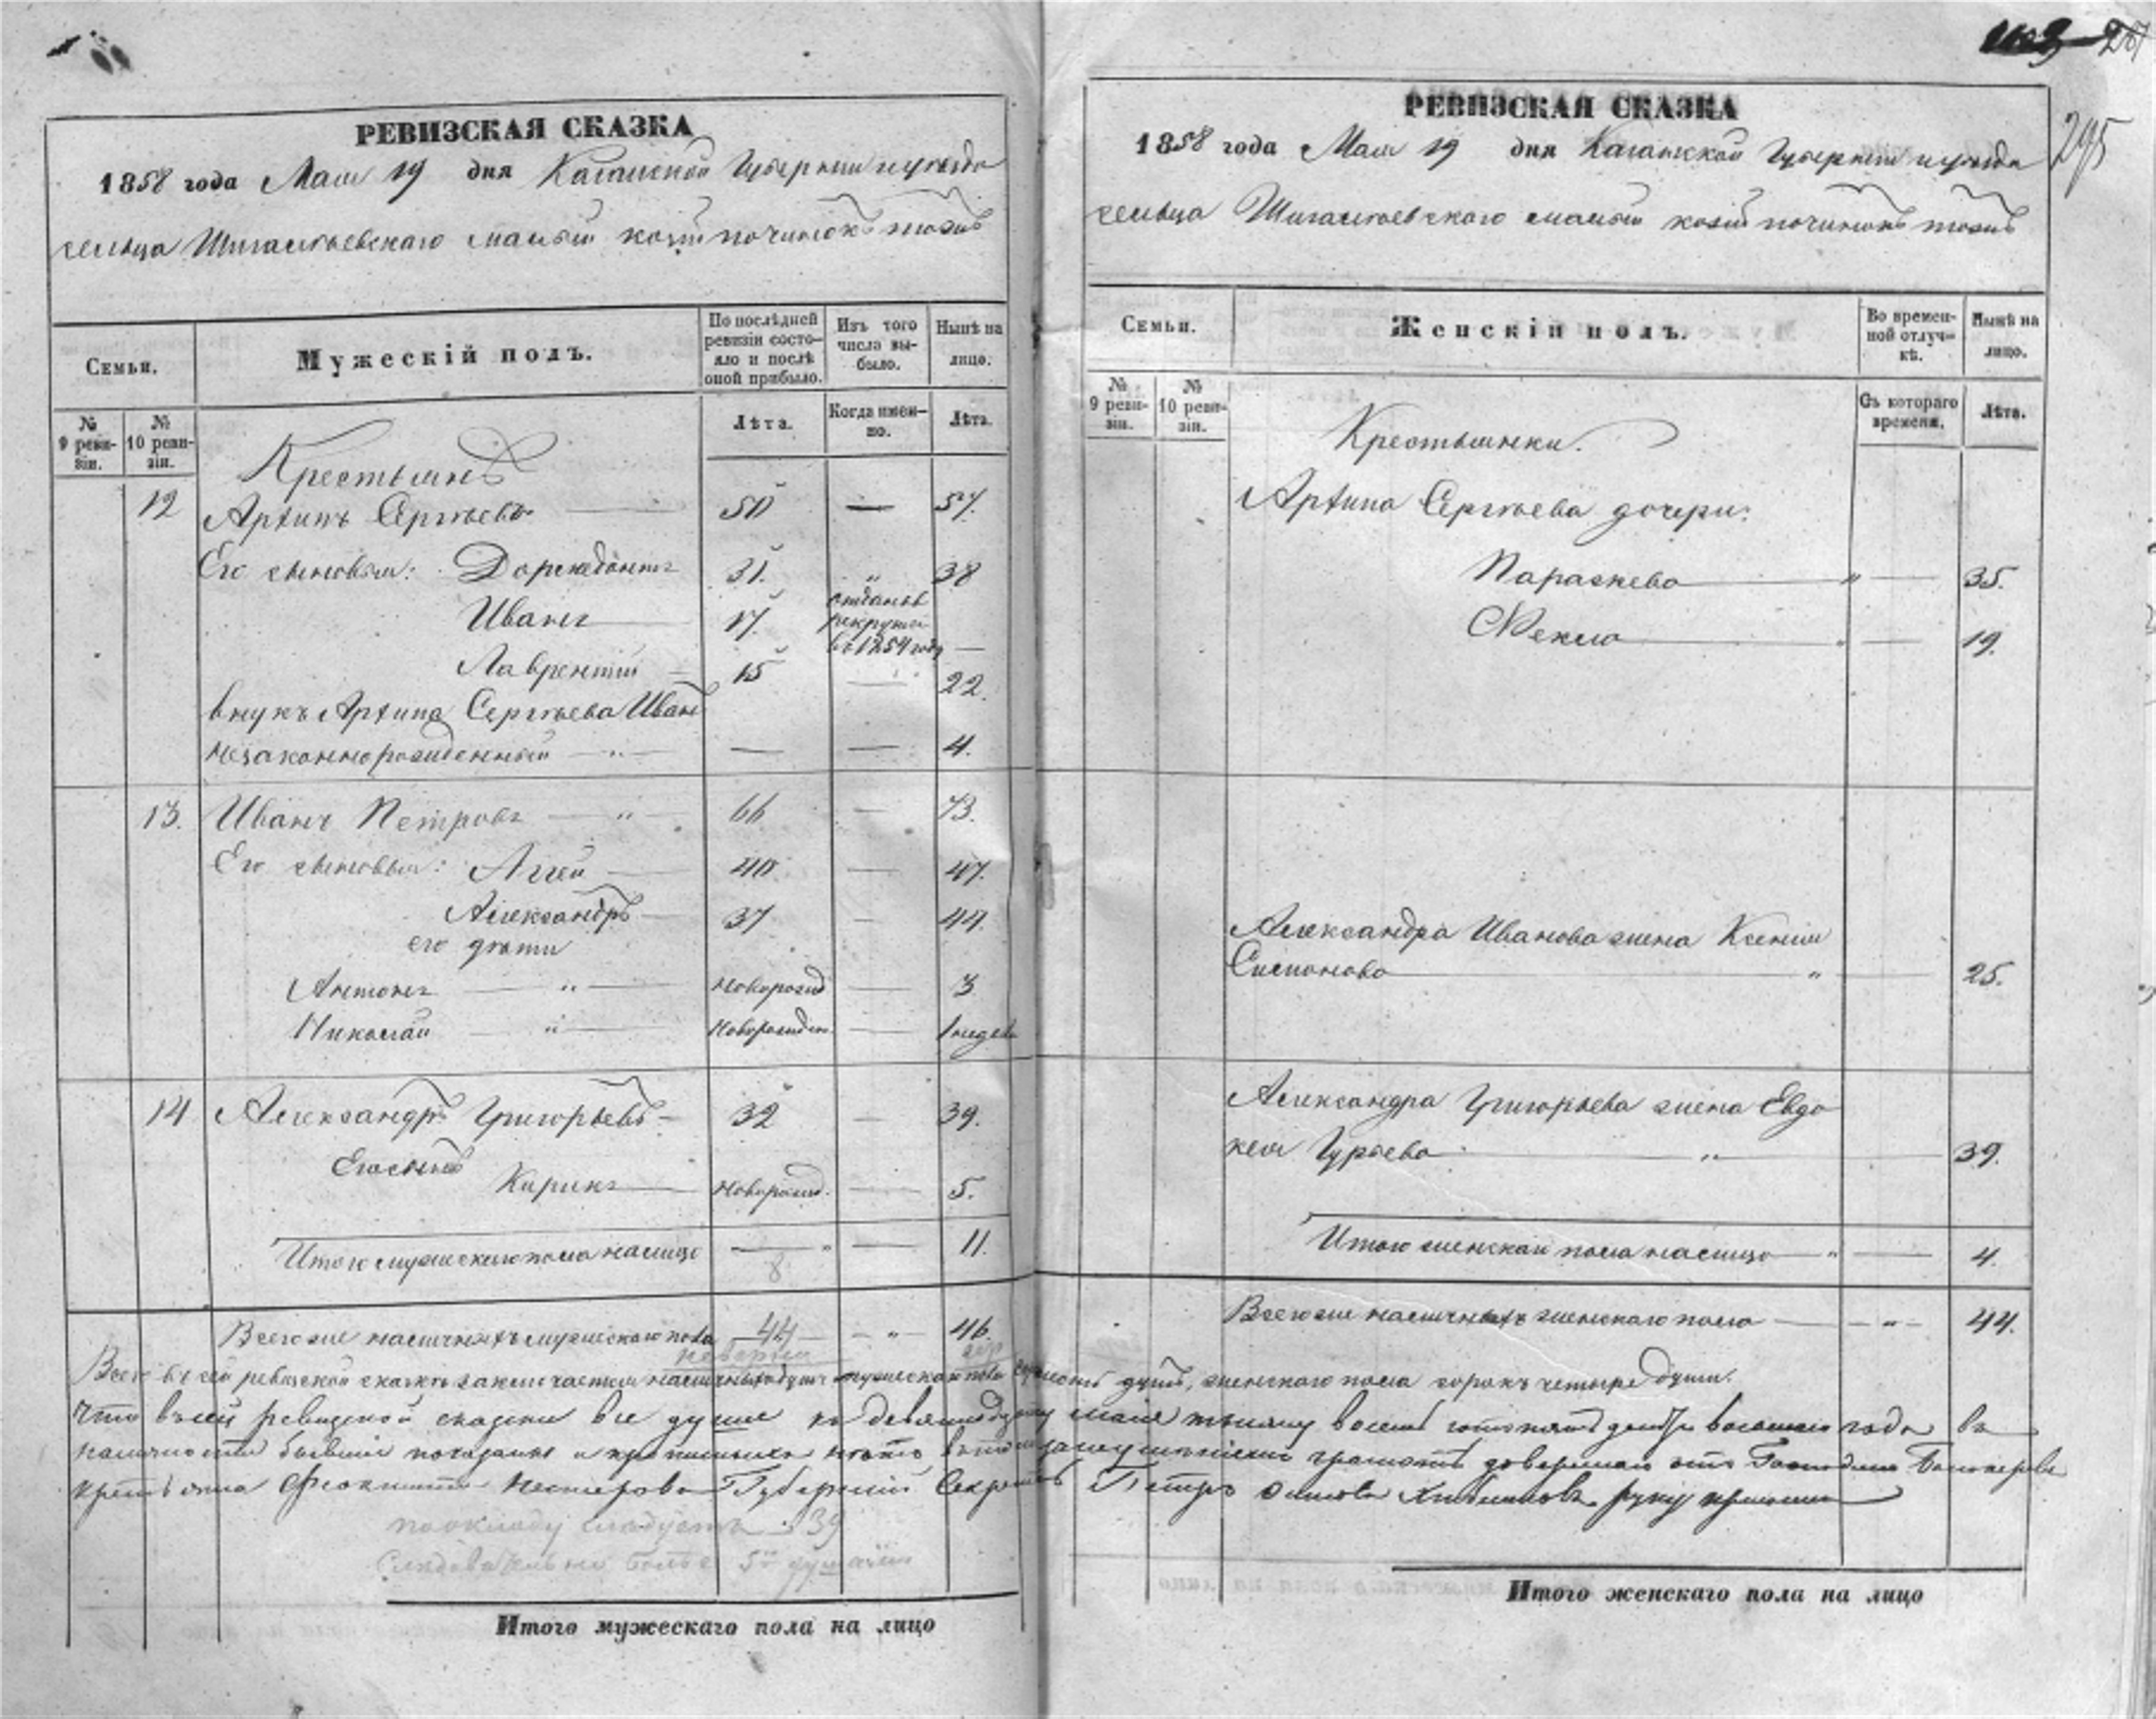 РЕВИЗСКАЯ СКАЗКА
1858 года Мая 19 дня Казанской Губернии и уезда
сельца Шигалеевского малый козій починокъ тожъ
Семьи.
Мужескій полъ.
По послѣдней ревизіи состояло и послѣ оной прибыло.
Изъ того числа выбыло.
Нынѣ на лицо.
№ 9 ревизіи.
№ 10 ревизіи.
Лѣта.
Когда именно.
Лѣта.
Крестьянъ
12 Архипъ Сергѣевъ 50 — 57.
Его сыновья: Дормедонтъ 31. „ 38
Иванъ 17. отданъ в рекруты въ 1854 году —
Лаврентій 15 — 22.
внукъ Архипа Сергѣева Иванъ
незаконнорожденный — „ — — — 4.
13. Иванъ Петровъ — „ — 66 — 73.
Его сыновья: Аггей — 40 — 47.
Александръ — 37 — 44.
его дѣти
Антонъ — „ — новорожд — 3
Николай — „ — Новорожден. — 1 недел
14 Александръ Григорьевъ — 32 — 39.
Его сынъ
Кирикъ — новорожд. — 5.
Итого мужескаго пола налицо — „ — 11.
8
Всего же наличныхъ мужескаго пола 44 — „ — 46.
Всего въ сей ревизской сказкѣ заключается наличныхъ душъ мужеска пола
Что въ сей ревизской сказки все души къ девятнадцатому
наличности бывшіе показаны и прописныхъ нѣтъ
Губернскій Секретарь
по окладу слѣдуетъ 39
Слѣдовательно болѣе 5ю душами
Итого мужескаго пола на лицо
295
РЕВИЗСКАЯ СКАЗКА
1858 года Мая 19 дня Казанской Губерніи и уезда
сельца Шигалеевского малый козій починокъ тожъ
Семьи.
Женскій полъ.
Во временной отлучкѣ.
Нынѣ на лицо.
№ 9 ревизіи.
№ 10 ревизіи.
Съ котораго времени.
Лѣта.
Крестьянки.
Архипа Сергѣева дочери:
Параскева — „ — 35.
Фекла — „ — 19.
Александра Иванова жена Ксенія
— „ — 25.
Александра Григорьева жена Евдо
кея Гурьева — „ — 39.
Итого женскаго пола налицо — „ — 4.
Всего же наличныхъ женскаго пола — „ — 44.
душъ, женскаго пола сорокъ четыре души.
мая тысячу восемь сотъ пятьдесятъ восьмаго года въ
грамотѣ
Петръ руку приложилъ
Итого женскаго пола на лицо